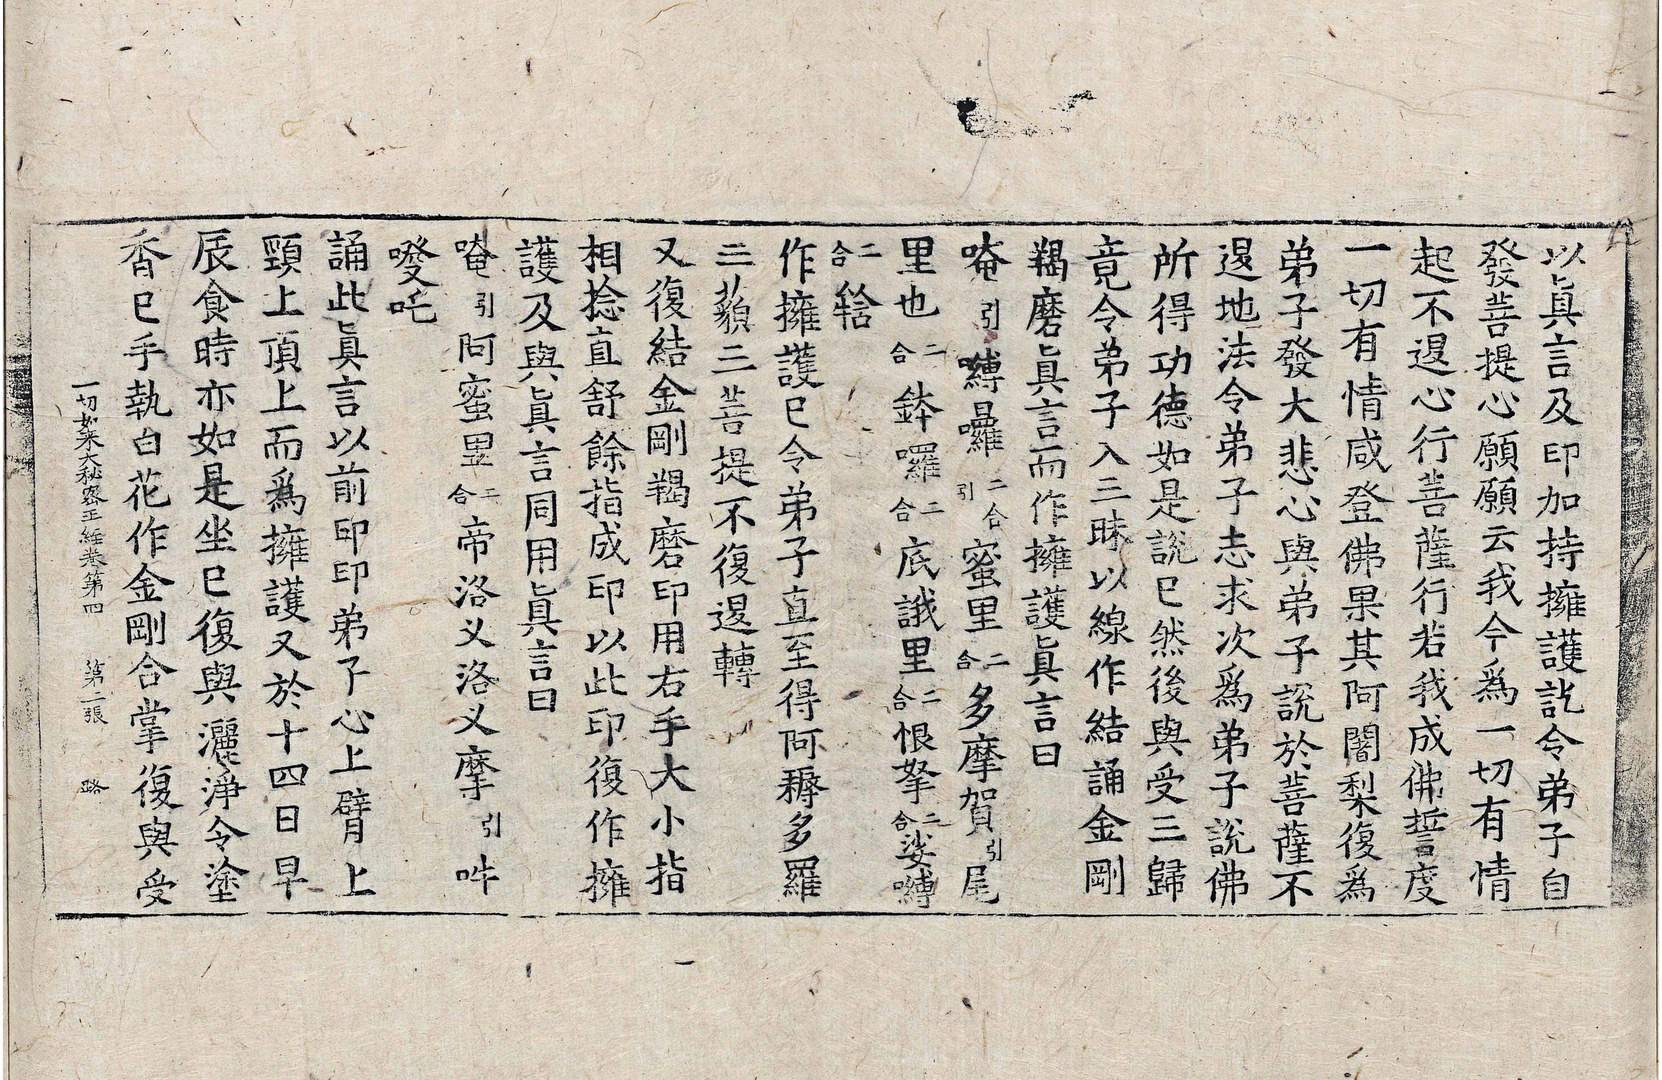 以眞言及印加持擁護訖令弟子自
發菩提心願願云我今爲一切有情
起不退心行菩薩行若我成佛誓度
一切有情咸登佛果其阿闍梨復爲
弟子發大悲心與弟子説於菩薩不
退地法令弟子志求次爲弟子説佛
所得功德如是説已然後與受三歸
竟令弟子入三昧以線作結誦金剛
羯磨眞言而作擁護眞言曰
唵引嚩囉二合引蜜里二合多摩賀引尾
里也二合鉢囉二合底誐里二合恨拏二合娑嚩
二合䩭
作擁護已令弟子直至得阿耨多羅
三藐三菩提不復退轉
又復結金剛羯磨印用右手大小指
相捻直舒餘指成印以此印復作擁
護及與眞言同用眞言曰
唵引阿蜜里二合帝洛义洛义摩引吽
發吒
誦此眞言以前印印弟子心上臂上
頸上頂上而爲擁護又於十四日早
辰食時亦如是坐已復與灑淨令塗
香已手執白花作金剛合掌復與受
一切如來大秘密王經卷第四 第二張 路